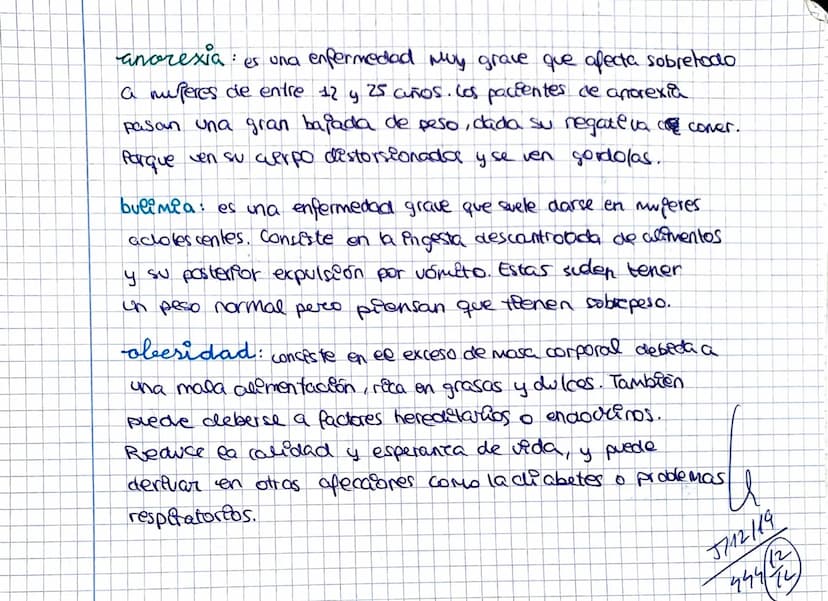 anorexia: es una enfermedad muy grave que afecta sobretodo
a mujeres de entre 12 y 25 años. Los pacientes de anorexia
pasan una gran bajada de peso, dada su negativa de comer.
Porque ven su cuerpo distorsionados y se ven gordo/as.
bulimia: es una enfermedad grave que suele darse en mujeres
adolescentes. Consiste en la ingesta descontrolada de alimentos
y su posterior expulsión por vómito. Estas suelen tener
un peso normal pero piensan que tienen sobrepeso.
obesidad: consiste en el exceso de masa corporal debida a
una mala alimentación, rica en grasas y dulces. También
puede deberse a factores hereditarios o endocrinos.
Reduce la calidad y esperanza de vida, y puede
derivar en otras afecciones como la diabetes o problemas
respiratorios.
5/12/19
12
12